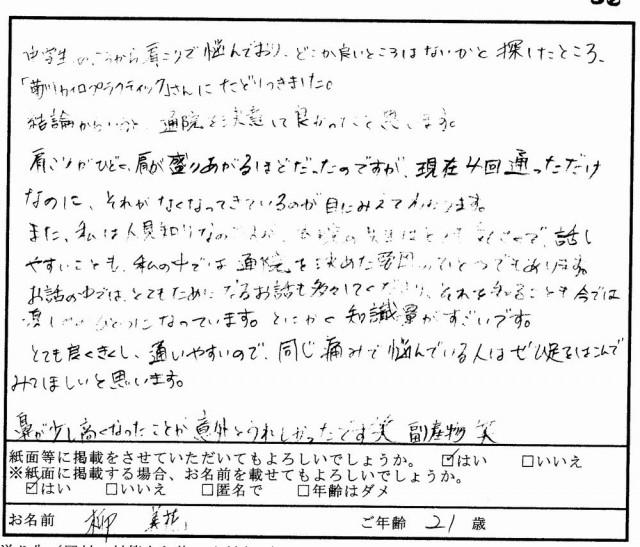 中学生のころから肩こりで悩んでおり、どこか良いところはないかと探したところ、
カイロプラクティック」さんにたどりつきました。
結論からいうと、通院を決意して良かったと思います。
肩こりがひどく、肩が盛りあがるほどだったのですが、現在4回通っただけ
なのに、それがなくなってきているのが目にみえてわかります。
また、私は人見知りなので 話し
やすいことも、私の中では通院を決めた要因のひとつでもあります。
お話の中では、とてもためになるお話も多々してくださり、それを知ることも今では
になっています。とにかく知識量がすごいです。
とても良くきくし、通いやすいので、同じ痛みで悩んでいる人はぜひ足をはこんで
みてほしいと思います。
鼻が少し高くなったことが意外とうれしかったです笑 副産物 笑
紙面等に掲載をさせていただいてもよろしいでしょうか。 ☑はい □いいえ
※紙面に掲載する場合、お名前を載せてもよろしいでしょうか。
☑はい □いいえ □匿名で □年齢はダメ
お名前 柳 ご年齢 21 歳